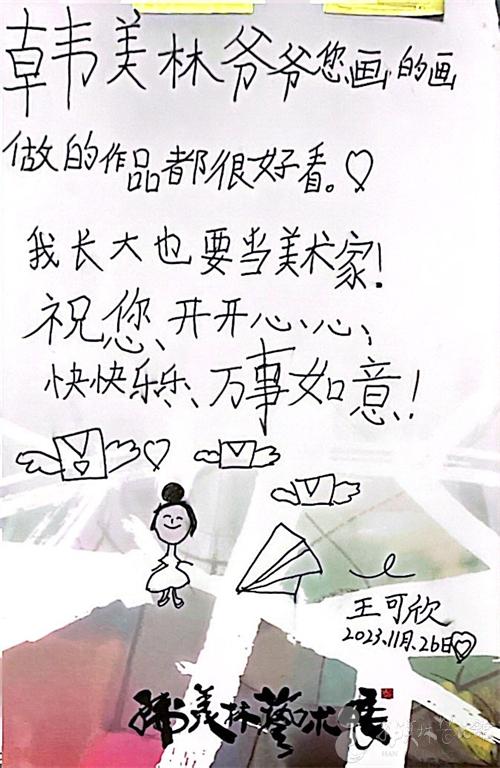 韩美林爷爷您画的画
做的作品都很好看。♡
我长大也要当美术家!
祝您、开开心、心、
快快乐乐、万事如意!
王可欣
2023.11.26日♡
韩美林艺术展
HAN